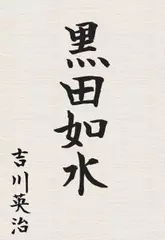 黒田如水
吉川英治